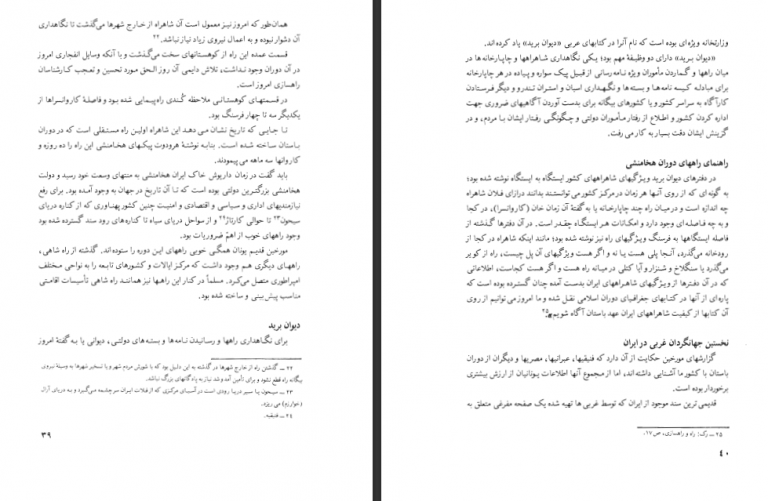 همان‌طور که امروز نیز معمول است آن شاهراه از خارج شهرها می‌گذشت تا نگاهداری
آن دشوار نبوده و به اعمال نیروی زیاد نیاز نباشد.۲۲
قسمت عمده این راه از کوهستانهای سخت می‌گذشت و با آنکه وسایل انفجاری امروز
در آن دوران وجود نداشت، تلاش دایمی آن روز الحق مورد تحسین و تعجب کارشناسان
راهسازی امروز است.
در قسمتهای کوهستانی ملاحظه کُندی راه‌پیمایی شده بود و فاصلهٔ کاروانسراها از
یکدیگر سه تا چهار فرسنگ بود.
تا جایی که تاریخ نشان می‌دهد این شاهراه اولین راه مستقلی است که در دوران
باستان ساخته شده است. بنا به نوشتهٔ هرودوت پیکهای هخامنشی این راه را ده روزه و
کاروانها سه ماهه می‌پیمودند.
باید گفت در زمان داریوش خاک ایران هخامنشی به منتهای وسعت خود رسید و دولت
هخامنشی بزرگترین دولتی بوده است که تا آن تاریخ در جهان به وجود آمده بود. برای رفع
نیازمندیهای اداری و سیاسی و اقتصادی و امنیت چنین کشور پهناوری که از کناره دریای
سیحون۲۳ تا حوالی کارتاژ۲۴ و از سواحل دریای سیاه تا کناره‌های رود سند گسترده شده بود
وجود راههای خوب از اهمّ ضروریات بود.
مورخین قدیم یونان همگی خوبی راههای این دوره را ستوده‌اند. گذشته از راه شاهی،
راههای دیگری هم وجود داشت که مرکز ایالات و کشورهای تابعه را به نواحی مختلف
امپراطوری متصل می‌کرد. مسلماً در کنار این راهها نیز همانند راه شاهی تأسیسات اقامتی
مناسب پیش‌بینی و ساخته شده بود.
دیوان برید
برای نگاهداری راهها و رسانیدن نامه‌ها و بسته‌های دولتی، دیوانی یا به گفتهٔ امروز
۲۲ ــ گذشتن راه از خارج شهرها در گذشته به این دلیل بود که با شورش مردم شهر و یا تسخیر شهرها به وسیلهٔ نیروی
بیگانه راه قطع نشود و برای تأمین آمد و شد نیاز به پادگانهای بزرگ نباشد.
۲۳ ــ سیحون یا سیر دریا رودی است در آسیای مرکزی که از فلات ایران سرچشمه می‌گیرد و به دریای آرال
(خوارزم) می‌ریزد.
۲۴ ــ فنیقیه.
۳۹
وزارتخانه ویژه‌ای بوده است که نام آنرا در کتابهای عربی «دیوان برید» یاد کرده‌اند.
«دیوان برید» دارای دو وظیفهٔ مهم بود؛ یکی نگاهداری شاهراهها و چاپارخانه‌ها در
میان راهها و گماردن مأموران ویژه نامه‌رسانی از قبیل پیک سواره و پیاده در هر چاپارخانه
برای مبادله کیسه نامه‌ها و بسته‌ها و نگهداری اسبان و استران تندرو و دیگر فرستادن
کارآگاه به سراسر کشور و یا کشورهای بیگانه برای بدست آوردن آگاهیهای ضروری جهت
اداره کردن کشور و اطلاع از رفتار مأموران دولتی و چگونگی رفتار ایشان با مردم، و در
گزینش ایشان دقت بسیار به کار می‌رفت.
راهنمای راههای دوران هخامنشی
در دفترهای دیوان برید ویژگیهای شاهراههای کشور ایستگاه به ایستگاه نوشته شده بود؛
به گونه‌ای که از روی آنها هر زمان در مرکز کشور می‌توانستند بدانند درازای فلان شاهراه
چه اندازه است و در میان راه چند چاپارخانه یا به گفتهٔ آن زمان خان (کاروانسرا)، در کجا
و به چه فاصله‌ای وجود دارد و امکانات هر ایستگاه چقدر است. در آن دفترها گذشته از
فاصله ایستگاهها به فرسنگ ویژگیهای راه نیز نوشته شده بود؛ مانند اینکه شاهراه در کجا از
رودخانه می‌گذرد، آنجا پلی هست یا نه و اگر هست ویژگیهای آن پل چیست، راه از کویر
می‌گذرد یا سنگلاخ و شنزار و آیا کتلی در میانه راه هست و اگر هست کجاست، اطلاعاتی
که در آن دفترها از ویژگیهای شاهراههای ایران بدست آمده چنان گسترده بوده است که
پاره‌ای از آنها در کتابهای جغرافیای دوران اسلامی نقل شده و ما امروز می‌توانیم از روی
آن کتابها از کیفیت شاهراههای ایران عهد باستان آگاه شویم۲۵
نخستین جهانگردان غربی در ایران
گزارشهای مورخین حکایت از آن دارد که فنیقیها، عبرانیها، مصریها و دیگران از دوران
باستان با کشور ما آشنایی داشته‌اند، اما از مجموع آنها اطلاعات یونانیان از ارزش بیشتری
برخوردار بوده است.
قدیمی‌ترین سند موجود از ایران که توسط غربی‌ها تهیه شده یک صفحه مفرغی متعلق به
۲۵ ــ رک: راه و راهسازی، ص ۱۷.
۴۰